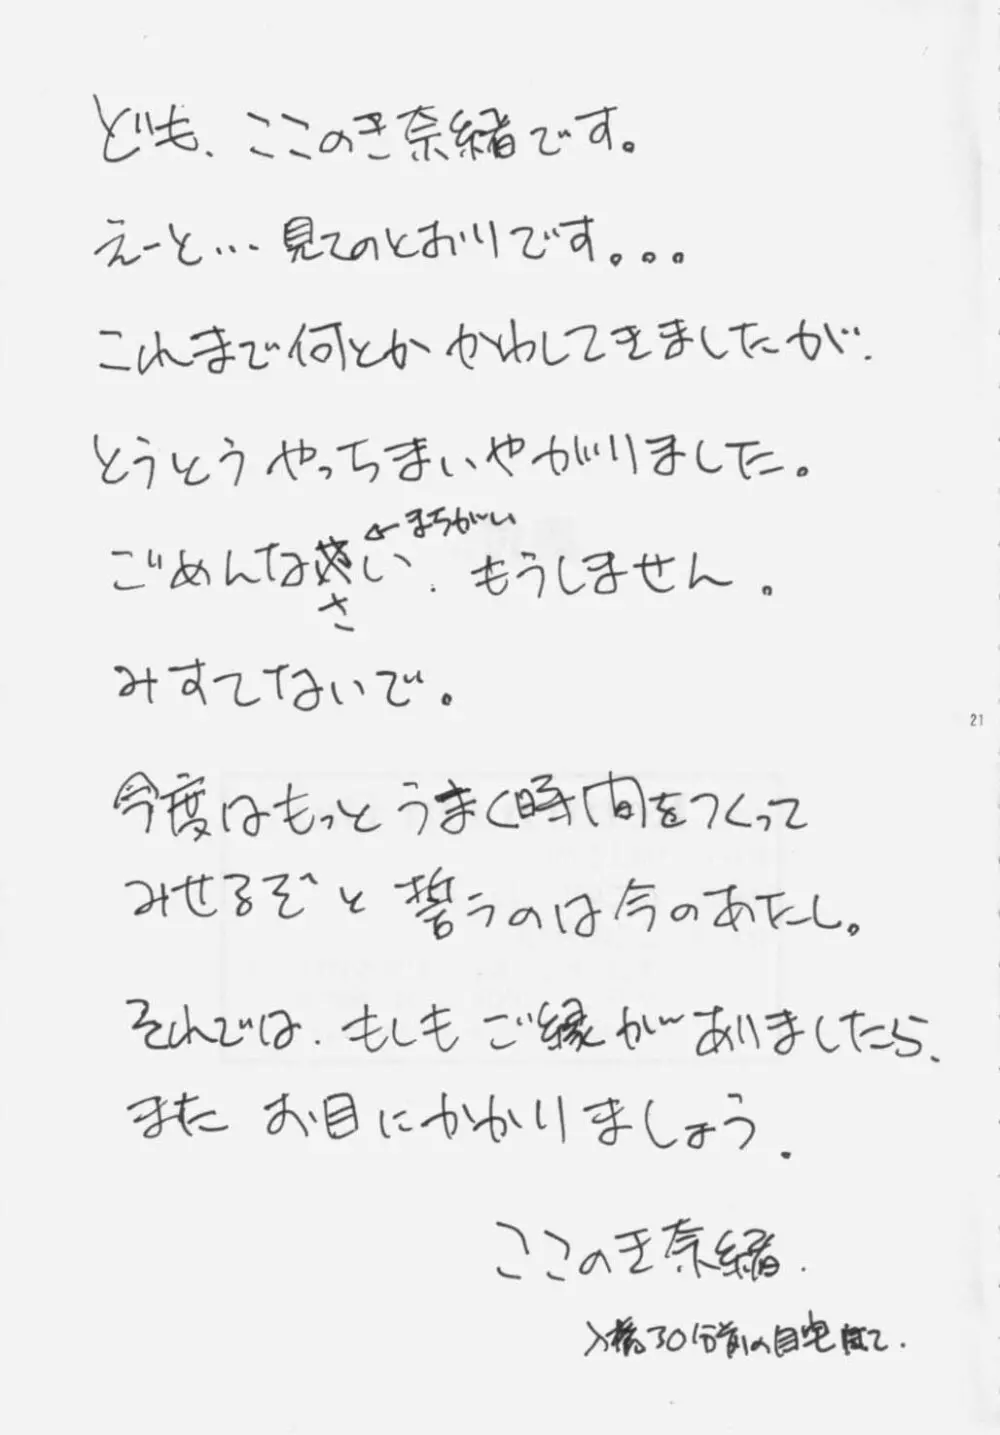 ども、ここのき奈緒です。
えーと…見てのとおりです。。。
これまで何とかかわしてきましたが、
とうとうやっちまいやがりました。
←まちがい
ごめんなさい。もうしません。
みすてないで。
21
今度はもっとうまく時間をつくって
みせるぞと誓うのは今のあたし。
それでは、もしもご縁がありましたら、
また お目にかかりましょう。
ここのき奈緒.
入稿30分前の自宅にて.